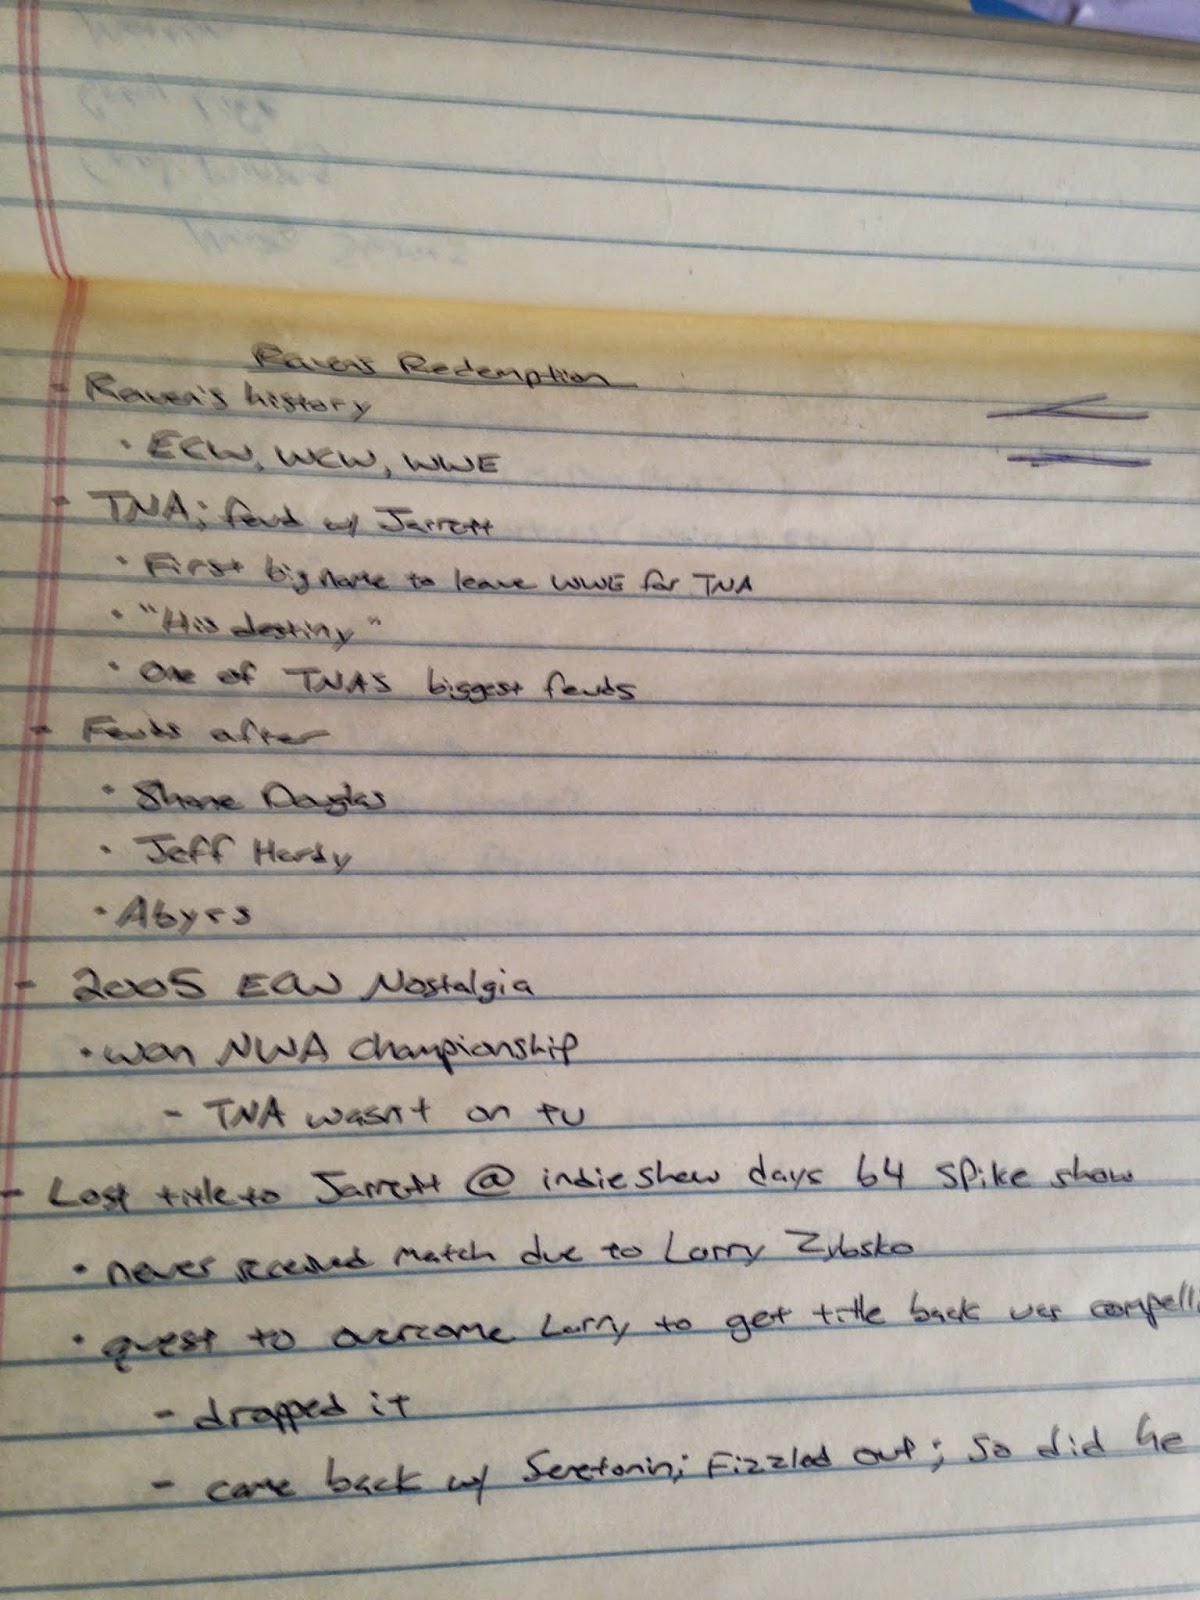 Ravens Redemption
- Raven's history
• ECW, WCW, WWE
- TNA; feud w/ Jarrett
• First big name to leave WWE for TNA
• "His destiny"
• One of TNAS biggest feuds
- Feuds after
• Shane Douglas
• Jeff Hardy
• Abyss
- 2005 ECW Nostalgia
• won NWA championship
- TNA wasnt on tv
- Lost title to Jarrett @ indie show days b4 Spike show
• never received match due to Larry Zybsko
• quest to overcome Larry to get title back was compelli
- dropped it
- came back w/ Seretonin; Fizzled out; so did he